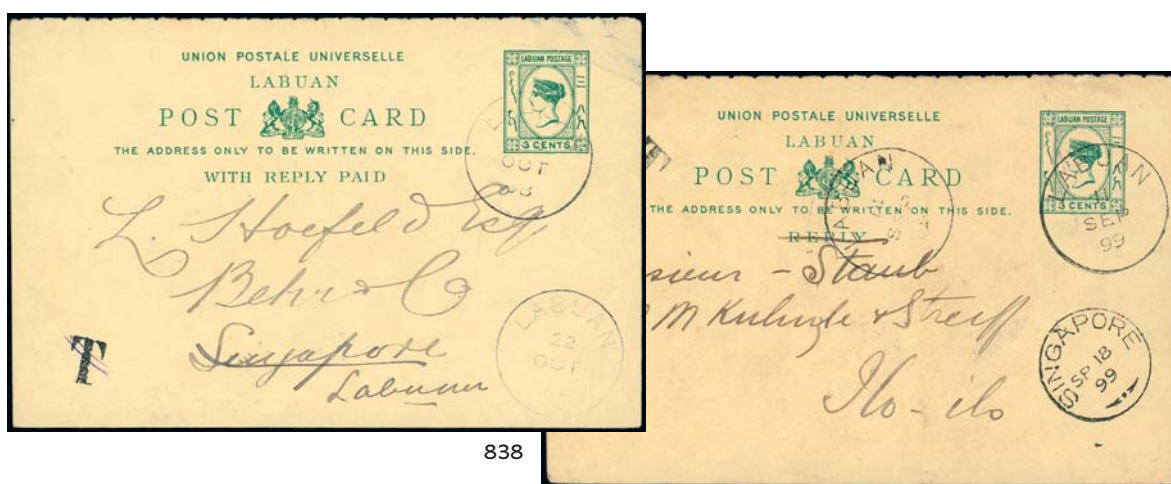 UNION POSTALE UNIVERSELLE
LABUAN
POST CARD
THE ADDRESS ONLY TO BE WRITTEN ON THIS SIDE.
WITH REPLY PAID
LABUAN POSTAGE
3 CENTS
OCT
L. Hoefeld Esq.
Behr & Co
Singapore
Labuan
T
LABUAN
22
OCT
838
UNION POSTALE UNIVERSELLE
LABUAN
POST CARD
THE ADDRESS ONLY TO BE WRITTEN ON THIS SIDE.
REPLY
LABUAN POSTAGE
3 CENTS
LABUAN
LABUAN
11
SEP
99
sieur - Staub
M & Streiff
Ilo-ilo
SINGAPORE
SP 18
99